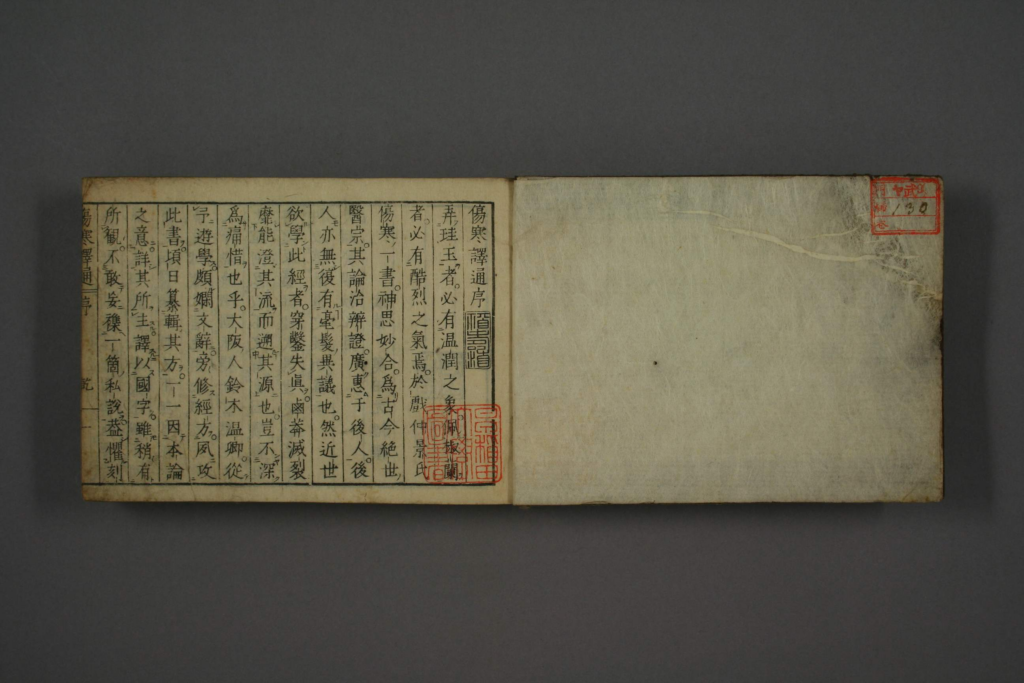 傷寒譯通序
弄珪玉者。必有温潤之象。佩椒蘭
者。必有酷烈之氣焉。於戲仲景氏
傷寒一書。神思妙合。爲古今絶世
醫宗。其論治辨證。廣惠于後人。後
人亦無復有毫髮異議也。然近世
欲學此經者。穿鑿失眞。鹵莽滅裂
靡能澄其流而遡其源也。豈不深
爲痛惜也乎。大阪人鈴木温卿。從
予遊學。頗嫺文辭。旁修經方。夙攻
此書。頃日纂輯其方。一一因本論
之意。詳其所主。譯以國字。雖稍有
所觀。不敢妄襍一箇私説。葢懼刻
傷寒譯通 序 乾 一
130